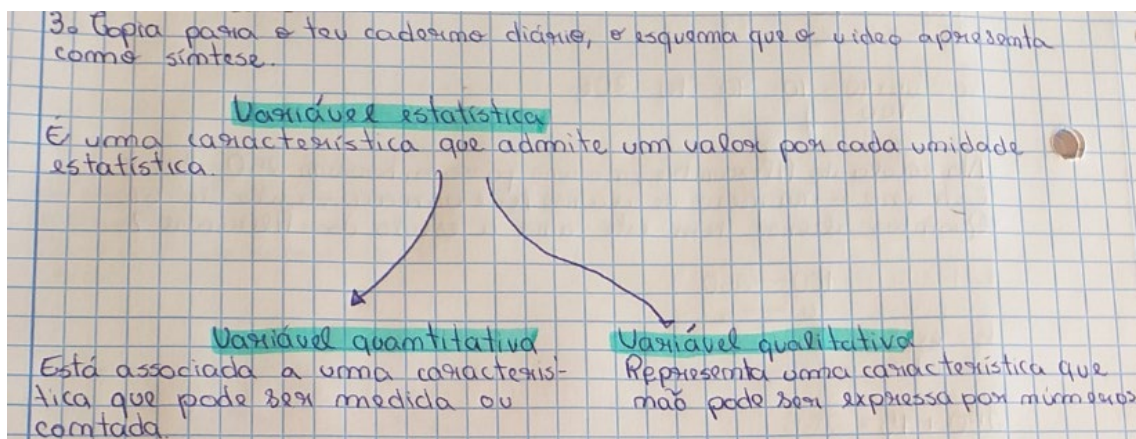 3. Copia para o teu caderno diário, o esquema que o vídeo apresenta
como síntese.
Variável estatística
É uma característica que admite um valor por cada unidade
estatística.
Variável quantitativa
Está associada a uma caracterís-
tica que pode ser medida ou
contada.
Variável qualitativa
Representa uma característica que
não pode ser expressa por números